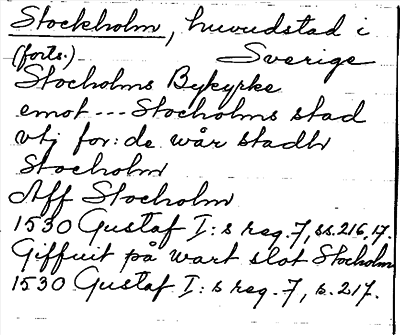 Stockholm, huvudstad i
(forts.) Sverige
Stocholms Bykyrke
emot --- Stocholms stad
vtj for:de wår stadh
Stocholm
Aff Stocholm
1530 Gustaf I:s reg. 7, ss. 216, 17.
Giffuit på wart slot Stocholm
1530 Gustaf I:s reg. 7, s. 217.